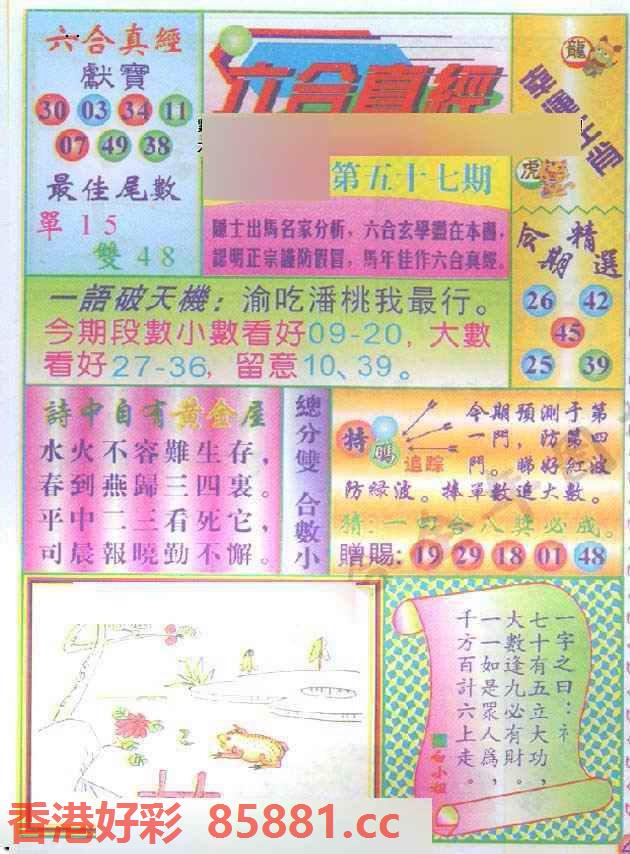 六合真經
獻寶
30 03 34 11
07 49 38
最佳尾數
單 1 5
雙 4 8
六合真經
第五十七期
隱士出馬名家分析，六合玄學盡在本圖，
認明正宗謹防假冒，馬年佳作六合真經。
龍
虎
今期
精選
26 42
45
25 39
一語破天機：渝吃潘桃我最行。
今期段數小數看好09-20，大數
看好27-36，留意10、39。
詩中自有黃金屋
水火不容難生存，
春到燕歸三四裏。
平中二三看死它，
司晨報曉勤不懈。
總分雙 合數小
特碼
追踪
今期預測于第
一門，防第四
門。睇好紅波
防綠波。捧單數追大數。
猜：一四合八獎必成。
贈賜：19 29 18 01 48
一字之曰：衤
七十有五立大功，
大數逢九必有財。
一一如是眾人為，
千方百計六上走。
白小姐
香港好彩 85881.cc